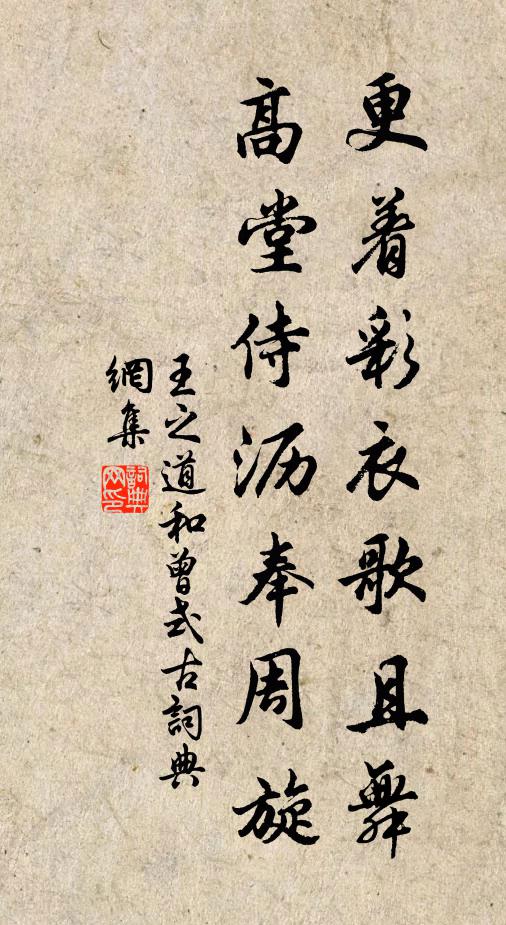 更着彩衣歌且舞
高堂侍沥奉周旋
王之道和曾式古詞典
網集
詞典
网印